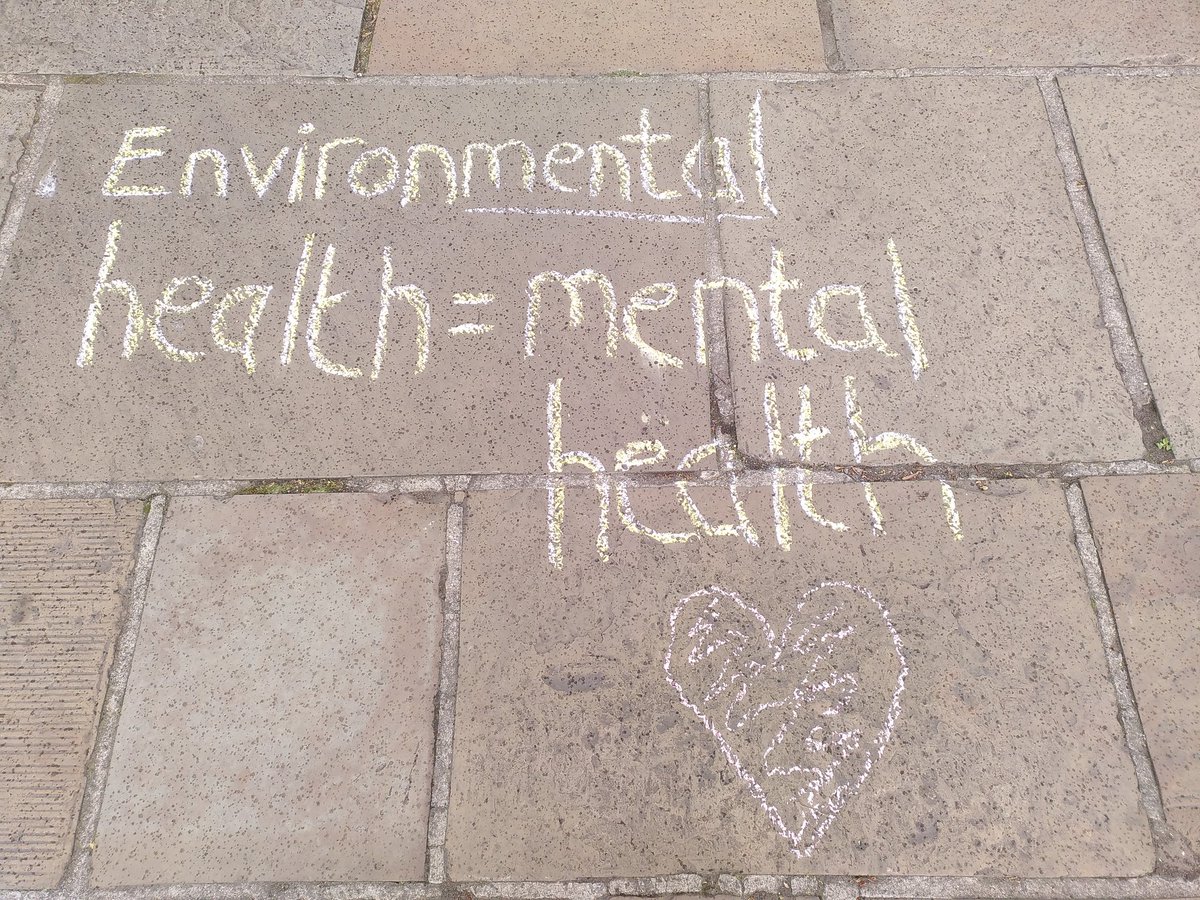 Environmental
health = mental
health